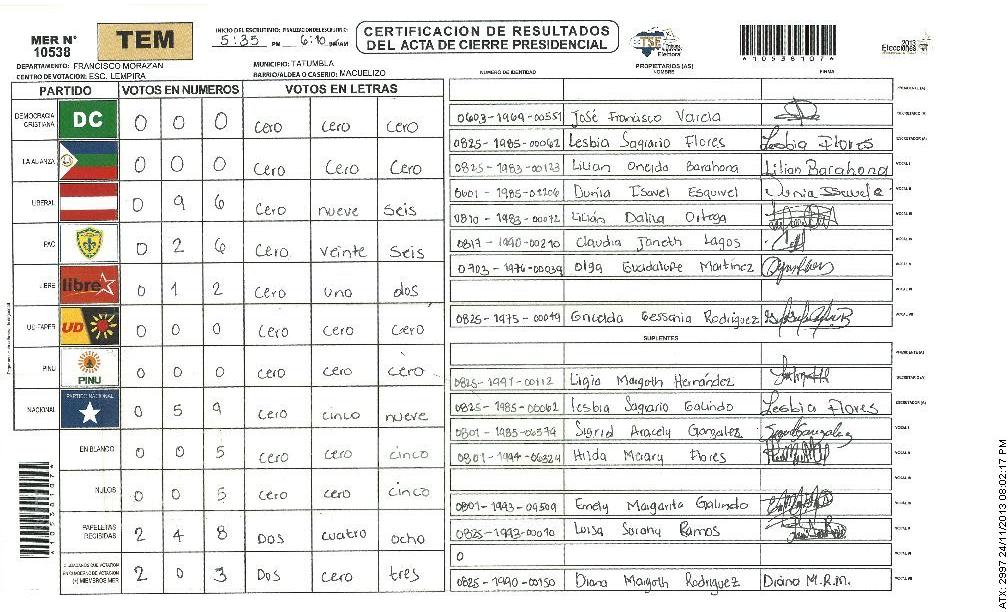 MER N° 10538
TEM
INICIO DEL ESCRUTINIO: FINALIZACION DEL ESCRUTINIO:
5:35 PM 6:10 PM/AM
CERTIFICACIÓN DE RESULTADOS
DEL ACTA DE CIERRE PRESIDENCIAL
TSE
2013
Elecciones
*10538107*
DEPARTAMENTO: FRANCISCO MORAZAN
MUNICIPIO: TATUMBLA
CENTRO DE VOTACION: ESC. LEMPIRA
BARRIO/ALDEA O CASERIO: NACUELIZO
PROPIETARIOS (AS)
NUMERO DE IDENTIDAD NOMBRE FIRMA
PARTIDO VOTOS EN NUMEROS VOTOS EN LETRAS
DEMOCRACIA CRISTIANA DC 0 0 0 cero cero cero
LA ALIANZA 0 0 0 Cero Cero Cero
LIBERAL 0 9 6 Cero nueve seis
PAC 0 2 6 Cero veinte seis
LIBRE libre 0 1 2 Cero uno dos
UD-FAPER UD 0 0 0 Cero cero cero
PINU PINU 0 0 0 cero cero cero
NACIONAL PARTIDO NACIONAL 0 5 9 Cero cinco nueve
EN BLANCO 0 0 5 Cero cero cinco
NULOS 0 0 5 Cero cero cinco
PAPELETAS RECIBIDAS 2 4 8 Dos cuatro ocho
CIUDADANOS QUE VOTARON
EN CUADERNO DE VOTACION
(+) MIEMBROS MER 2 0 3 Dos cero tres
*10538107*
PRESIDENTE (A)
0603-1969-00551 José Francisco Varela SECRETARIO (A)
0825-1985-00062 Lesbia Sagrario Flores Lesbia Flores ESCRUTADOR (A)
0825-1983-00123 Lilian Oneida Barahona Lilian Barahona VOCAL I
0801-1985-01206 Dunia Isavel Esquivel VOCAL II
0810-1983-00072 Lilian Dalina Ortega VOCAL III
0817-1990-00210 Claudia Janeth Lagos VOCAL IV
0703-1976-00039 Olga Guadalupe Martinez VOCAL V
VOCAL VI
0825-1975-00019 Griselda Gessania Rodriguez VOCAL VII
SUPLENTES
PRESIDENTE (A)
0825-1991-00112 Ligia Margoth Hernández SECRETARIO (A)
0825-1985-00062 Lesbia Sagrario Galindo Lesbia Flores ESCRUTADOR (A)
0801-1985-06574 Sigrid Aracely Gonzales VOCAL I
0801-1994-06324 Hilda Maary Flores VOCAL II
VOCAL III
0801-1993-09509 Emely Margarita Galindo VOCAL IV
0825-1993-00010 Luisa Sarahy Ramos VOCAL V
0 VOCAL VI
0825-1990-00150 Diana Margoth Rodriguez Diana M.R.M. VOCAL VII
ATX: 2997 24/11/2013 08:02:17 PM